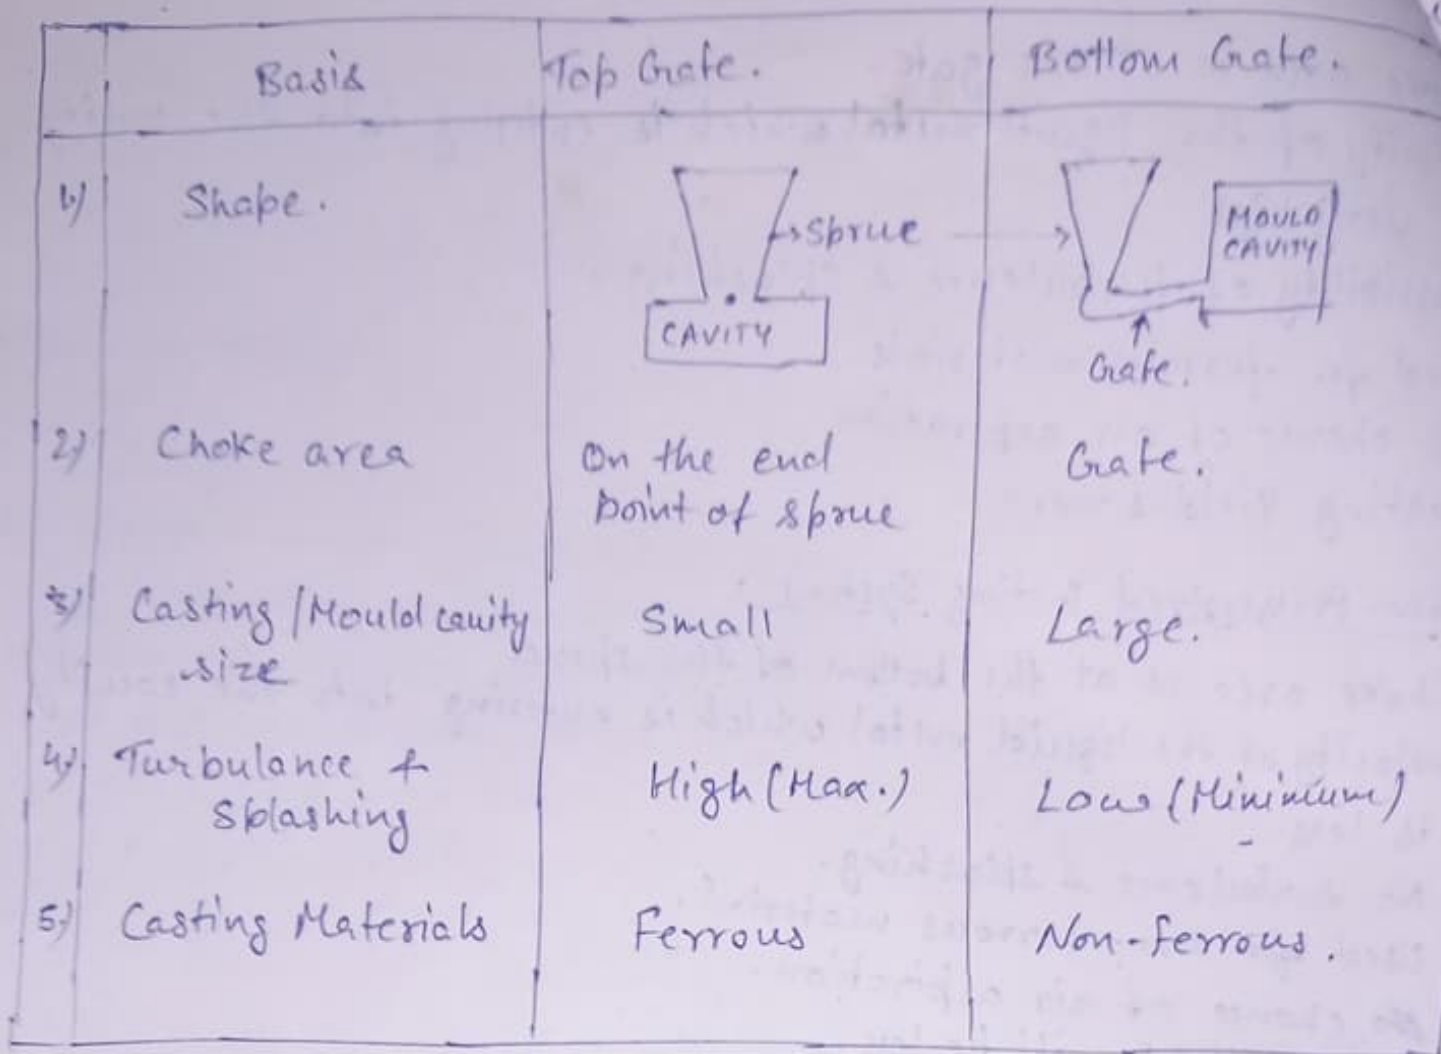 Basis Top Gate. Bottom Gate.
1) Shape.
Sprue
CAVITY
MOULD
CAVITY
Gate.
2) Choke area On the end Gate.
point of sprue
3) Casting/Mould cavity Small Large.
size
4) Turbulance & High (Max.) Low (Minimum)
Splashing
5) Casting Materials Ferrous Non-Ferrous.